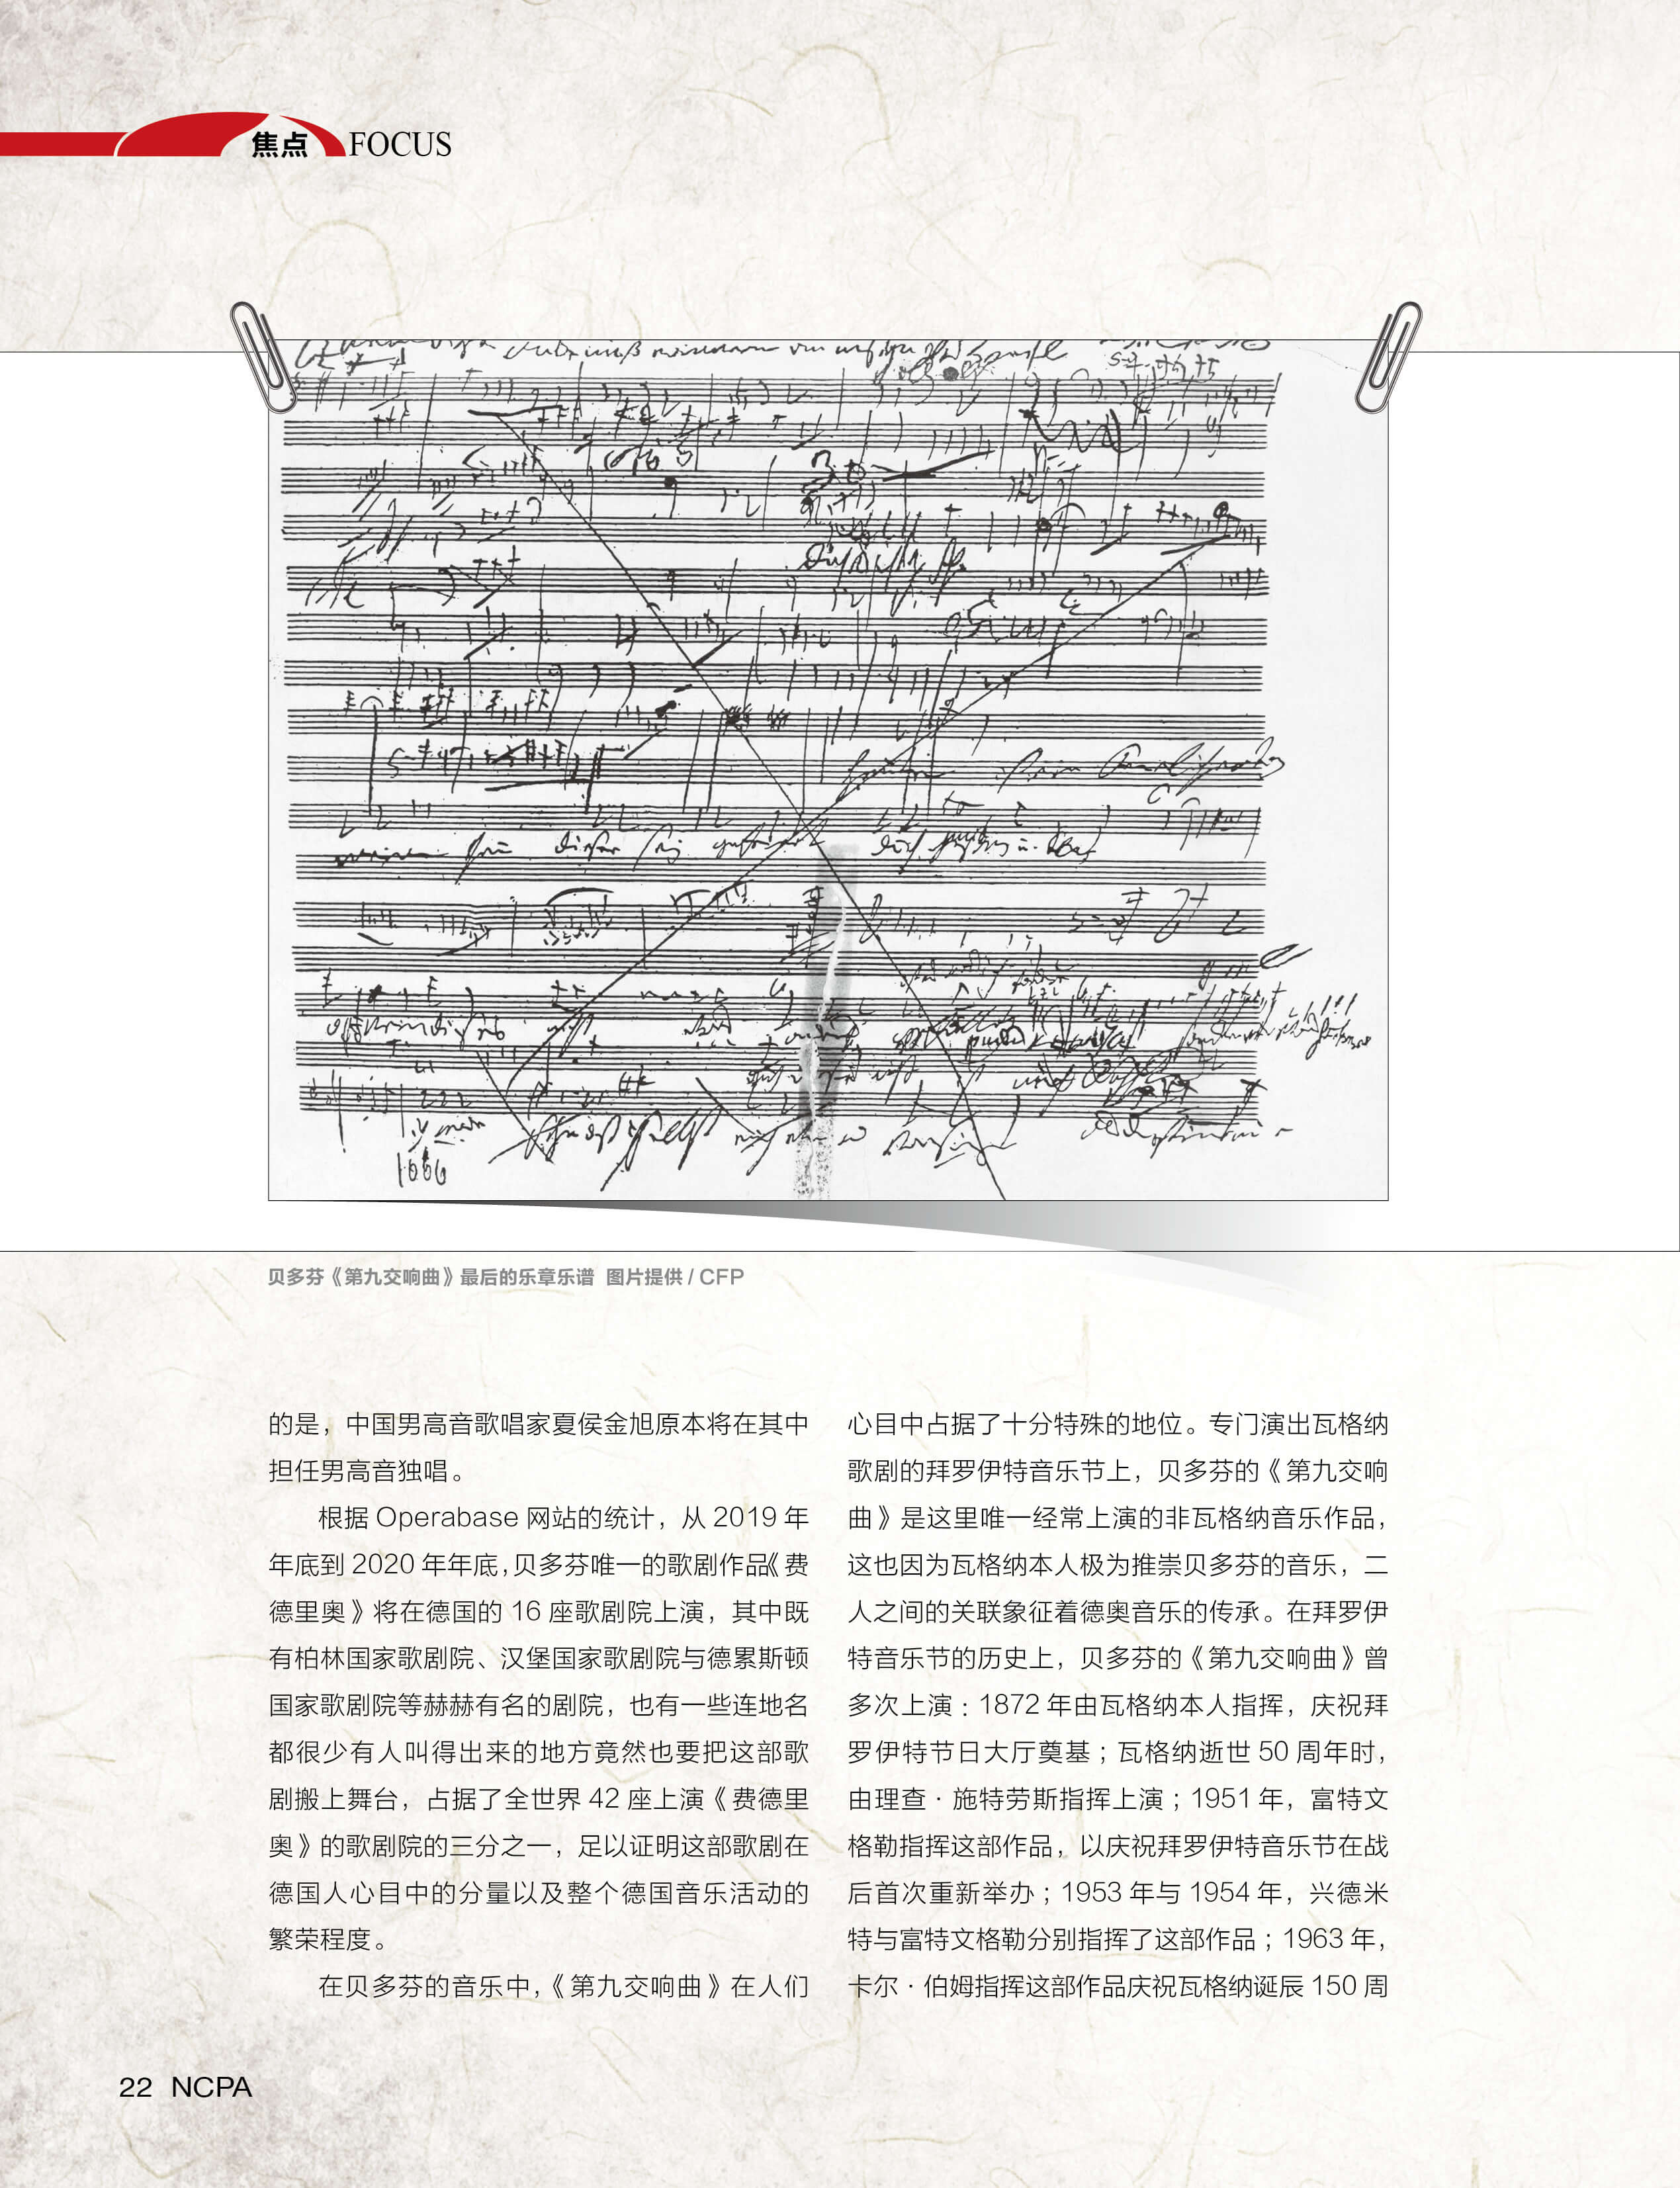 焦点 FOCUS
贝多芬《第九交响曲》最后的乐章乐谱 图片提供 / CFP
的是，中国男高音歌唱家夏侯金旭原本将在其中
担任男高音独唱。
根据 Operabase 网站的统计，从 2019 年
年底到 2020 年年底，贝多芬唯一的歌剧作品《费
德里奥》将在德国的 16 座歌剧院上演，其中既
有柏林国家歌剧院、汉堡国家歌剧院与德累斯顿
国家歌剧院等赫赫有名的剧院，也有一些连地名
都很少有人叫得出来的地方竟然也要把这部歌
剧搬上舞台，占据了全世界 42 座上演《费德里
奥》的歌剧院的三分之一，足以证明这部歌剧在
德国人心目中的分量以及整个德国音乐活动的
繁荣程度。
在贝多芬的音乐中，《第九交响曲》在人们
心目中占据了十分特殊的地位。专门演出瓦格纳
歌剧的拜罗伊特音乐节上，贝多芬的《第九交响
曲》是这里唯一经常上演的非瓦格纳音乐作品，
这也因为瓦格纳本人极为推崇贝多芬的音乐，二
人之间的关联象征着德奥音乐的传承。在拜罗伊
特音乐节的历史上，贝多芬的《第九交响曲》曾
多次上演：1872 年由瓦格纳本人指挥，庆祝拜
罗伊特节日大厅奠基；瓦格纳逝世 50 周年时，
由理查·施特劳斯指挥上演；1951 年，富特文
格勒指挥这部作品，以庆祝拜罗伊特音乐节在战
后首次重新举办；1953 年与 1954 年，兴德米
特与富特文格勒分别指挥了这部作品；1963 年，
卡尔·伯姆指挥这部作品庆祝瓦格纳诞辰 150 周
22 NCPA